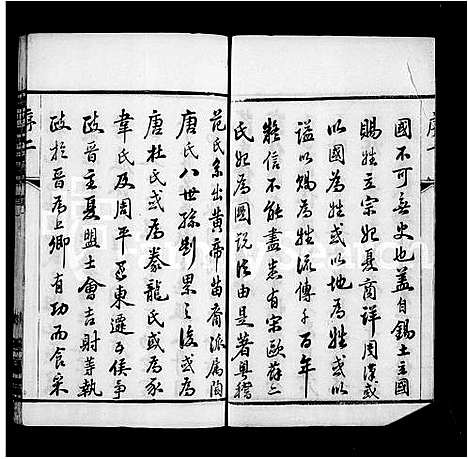 國不可無史也蓋自錫土立國
賜姓立宗妃夏商詳周漢或
以國為姓或以地為姓或以
謚以賜為姓流傳千百年
難信不能盡悉有宋歐蘇二
氏起為圖說法由是著粵稽
范氏系出黃帝苗裔派屬陶
唐氏八世孫劉累之後或為
唐杜氏或為豢龍氏或為豕
韋氏及周平王東遷五侯爭
政晉主夏盟士會吉射等執
政於晉為上卿有功而食采
序二
FamilySearch